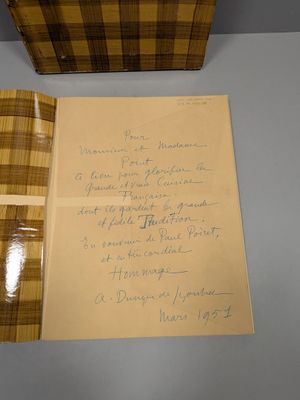 Pour
Monsieur et Madame
Point
a lieu pour glorifier la
Grande et Vraie Cuisine
Française
dont ils gardent la grande
et fidele Tradition.
En souvenir de Paul Poiret,
et cordial
Hommage
A.
Mars 1951